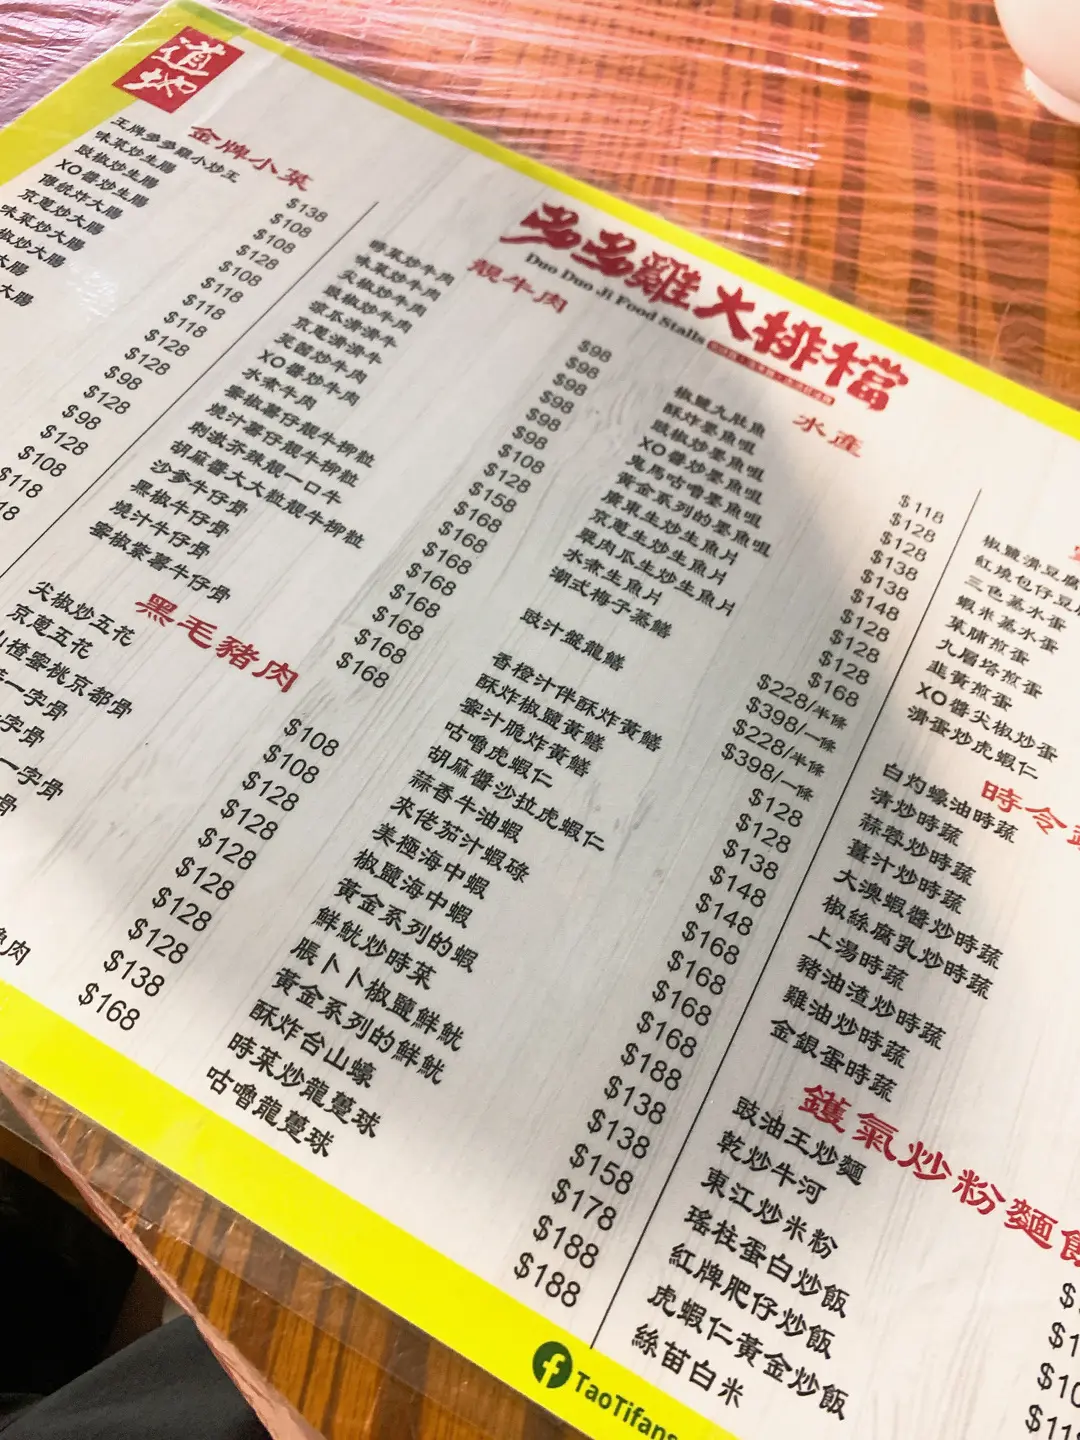 道地
多多雞大排檔
Duo Duo Ji Food Stalls
金牌小菜
王牌多多雞小炒王 $138
味菜炒生腸 $108
豉椒炒生腸 $108
XO醬炒生腸 $128
傳統炸大腸 $108
京蔥炒大腸 $118
味菜炒大腸 $118
椒炒大腸 $118
大腸 $128
大腸 $98
$128
$98
$128
$108
$118
18
靚牛肉
時菜炒牛肉 $98
味菜炒牛肉 $98
尖椒炒牛肉 $98
豉椒炒牛肉 $98
涼瓜滑滑牛 $98
京蔥滑滑牛 $108
芙茵炒牛肉 $128
XO醬炒牛肉 $158
水煮牛肉 $168
蜜椒薯仔靚牛柳粒 $168
燒汁薯仔靚牛柳粒 $168
刺激芥辣靚一口牛 $168
胡麻醬大大粒靚牛柳粒 $168
沙爹牛仔骨 $168
黑椒牛仔骨 $168
燒汁牛仔骨 $168
蜜椒紫薯牛仔骨
黑毛豬肉
尖椒炒五花 $108
京蔥五花 $108
山楂蜜桃京都骨 $128
一字骨 $128
字骨 $128
一字骨 $128
骨 $128
$128
$138
魚肉 $168
水產
椒鹽九肚魚 $118
酥炸墨魚咀 $128
豉椒炒墨魚咀 $128
XO醬炒墨魚咀 $138
鬼馬咕嚕墨魚咀 $138
黃金系列的墨魚咀 $148
廣東生炒生魚片 $128
京蔥生炒生魚片 $128
翠肉瓜生炒生魚片 $128
水煮生魚片 $168
潮式梅子蒸鱔 $228/半條
$398/一條
豉汁盤龍鱔 $228/半條
$398/一條
香橙汁伴酥炸黃鱔 $128
酥炸椒鹽黃鱔 $128
蜜汁脆炸黃鱔 $138
咕嚕虎蝦仁 $148
胡麻醬沙拉虎蝦仁 $148
蒜香牛油蝦 $168
來佬茄汁蝦碌 $168
美極海中蝦 $168
椒鹽海中蝦 $168
黃金系列的蝦 $188
鮮魷炒時菜 $138
脹卜卜椒鹽鮮魷 $138
黃金系列的鮮魷 $158
酥炸台山蠔 $178
時菜炒龍躉球 $188
咕嚕龍躉球 $188
椒鹽滑豆腐
紅燒包仔豆
三色蒸水蛋
蝦米蒸水蛋
菜脯煎蛋
九層塔煎蛋
韭黃煎蛋
XO醬尖椒炒蛋
滑蛋炒虎蝦仁
時令
白灼蠔油時蔬
清炒時蔬
蒜蓉炒時蔬
薑汁炒時蔬
大澳蝦醬炒時蔬
椒絲腐乳炒時蔬
上湯時蔬
豬油渣炒時蔬
雞油炒時蔬
金銀蛋時蔬
鑊氣炒粉麵飯
豉油王炒麵
乾炒牛河
東江炒米粉
瑤柱蛋白炒飯
紅牌肥仔炒飯
虎蝦仁黃金炒飯
絲苗白米
TaoTifans